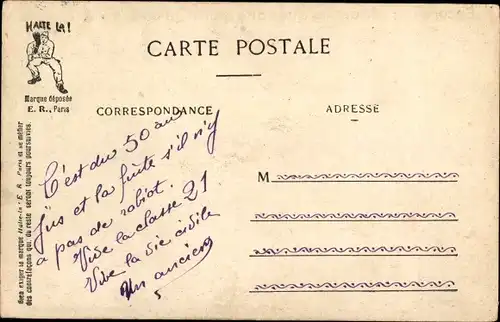 HALTE LA!
Marque déposée
E. R., Paris
CARTE POSTALE
CORRESPONDANCE
ADRESSE
M
C'est du 50 au
jus et la fuite s'il n'y
a pas de rabiot.
Vive la classe 21
Vive la vie civile
Un ancien
Bien exiger la marque Halte-là - E. R. Paris et se méfier
des contrefaçons qui du reste seront toujours poursuivies.